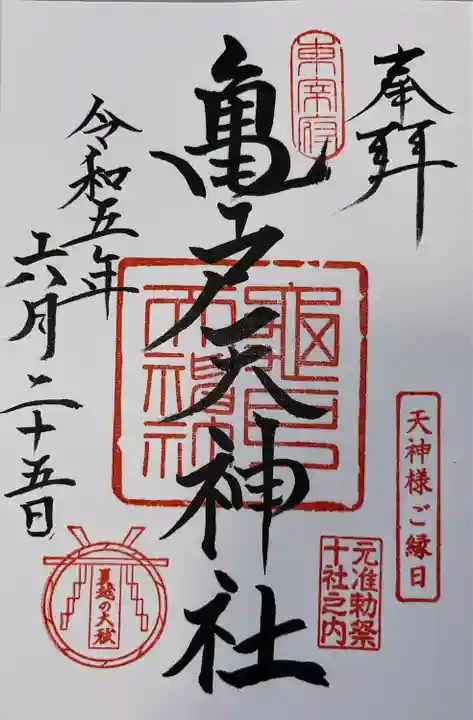 奉拝
天神様ご縁日
東宰府
亀戸天神社
元准勅祭
十社之内
令和五年
六月二十五日
夏越の大祓